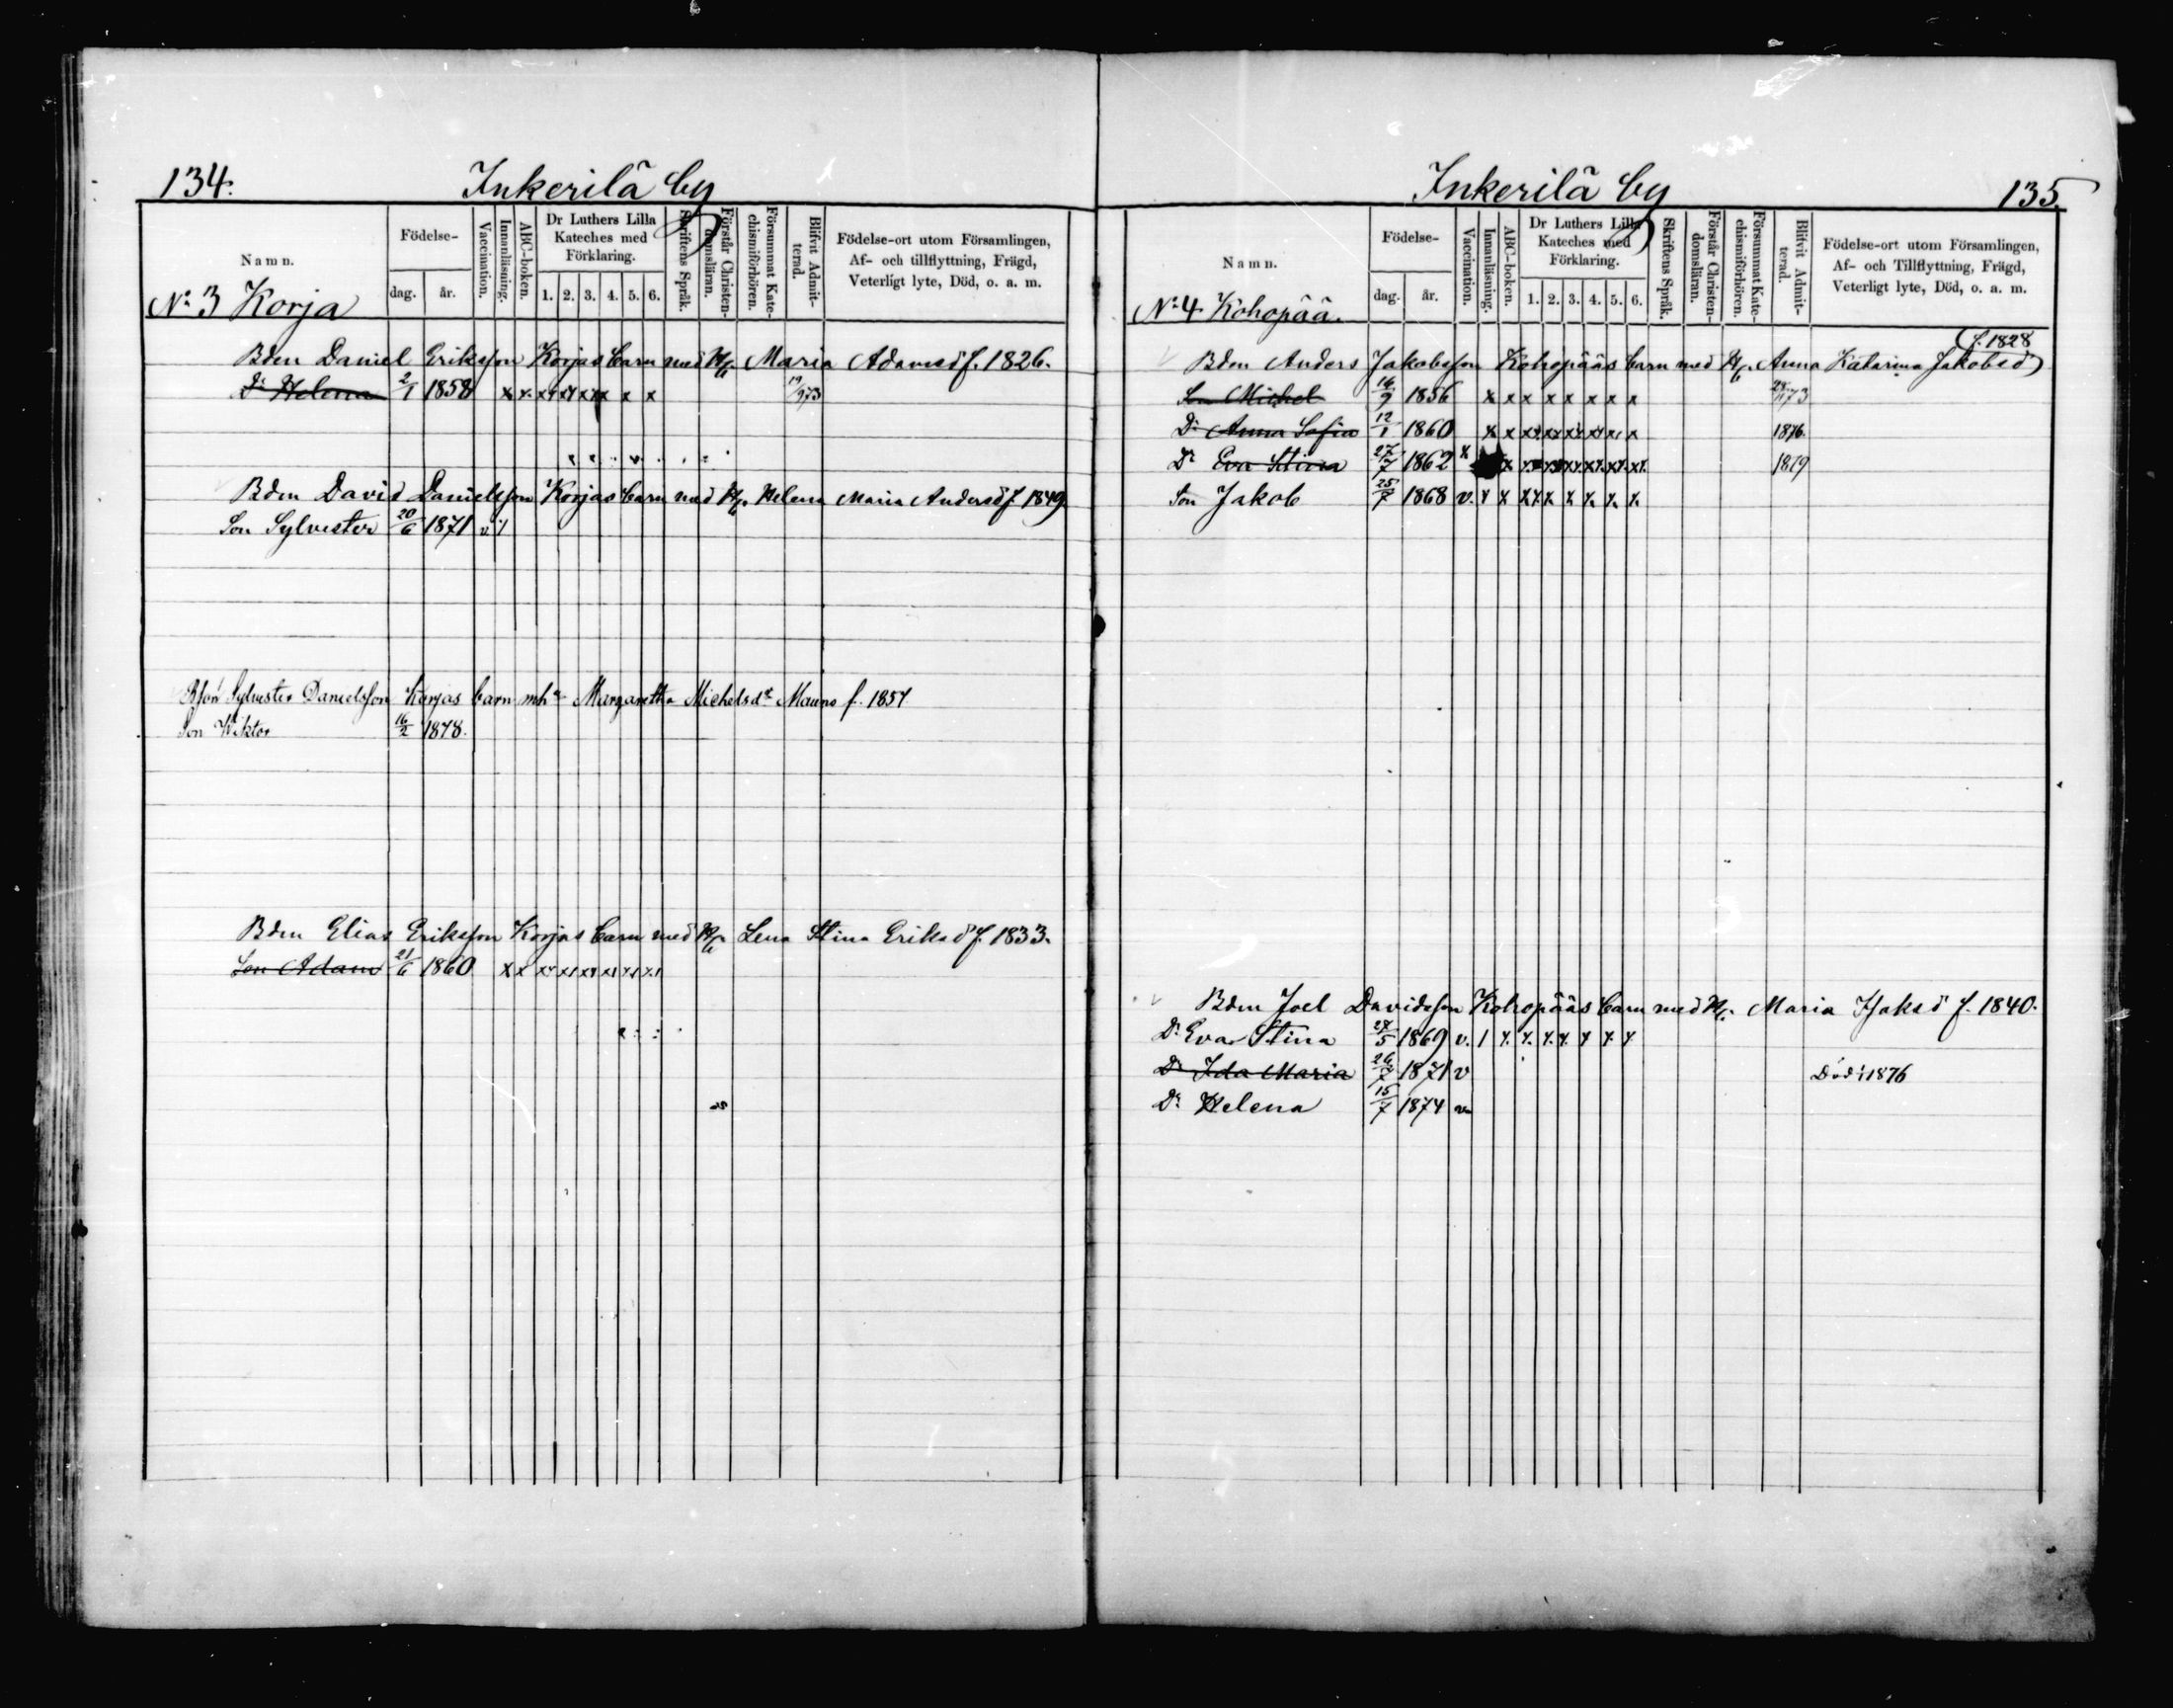 134.
Inkerilä by
Namn.
Födelse-
dag.
år.
Vaccination.
Innanläsning.
ABC-boken.
Dr Luthers Lilla
Kateches med
Förklaring.
1. 2. 3. 4. 5. 6.
Skriftens Språk.
Förstår Christen-
domsläran.
Försummat Kate-
chismiförhören.
Blifvit Admit-
terad.
Födelse-ort utom Församlingen,
Af- och tillflyttning, Frägd,
Veterligt lyte, Död, o. a. m.
No 3 Korja
Bden Daniel Eriksson Korjas barn med H. Maria Adamsd f. 1826.
Dr Helena 2/1 1858 x x x x x x x x 19/9 73
Bdn David Danielsson Korjas barn med H. Helena Maria Andersd f 1849
Son Sylvester 20/6 1871 v
Bson Sylvester Danielsson Korjas barn mh Margaretha Michelsdr Mauno f. 1857
Son Wiktor 16/2 1878.
Bdn Elias Eriksson Korjas barn med H. Lena Stina Eriksd f. 1833.
Son Adam 21/6 1860 x x x x x x x x
Inkerilä by
135.
Namn.
Födelse-
dag.
år.
Vaccination.
Innanläsning.
ABC-boken.
Dr Luthers Lilla
Kateches med
Förklaring.
1. 2. 3. 4. 5. 6.
Skriftens Språk.
Förstår Christen-
domsläran.
Försummat Kate-
chismiförhören.
Blifvit Admit-
terad.
Födelse-ort utom Församlingen,
Af- och Tillflyttning, Frägd,
Veterligt lyte, Död, o. a. m.
No 4 Kohopää.
f. 1828
Bdn Anders Jakobsson Kohopääs barn med H. Anna Katarina Jakobsd
Son Michel 16/9 1856 x x x x x x x x 73
Dr Anna Sofia 12/1 1860 x x x x x x x x 1876
Dr Eva Stina 27/7 1862 x x x x x x x x 1879
Son Jakob 25/7 1868 v. x x x x x x x x
Bdn Joel Davidsson Kohopääs barn med H. Maria Isaksd f. 1840.
Dr Eva Stina 27/5 1869 v. 1 x x x x x x x
Dr Ida Maria 26/7 1871 v Död 1876
Dr Helena 15/7 1874 v